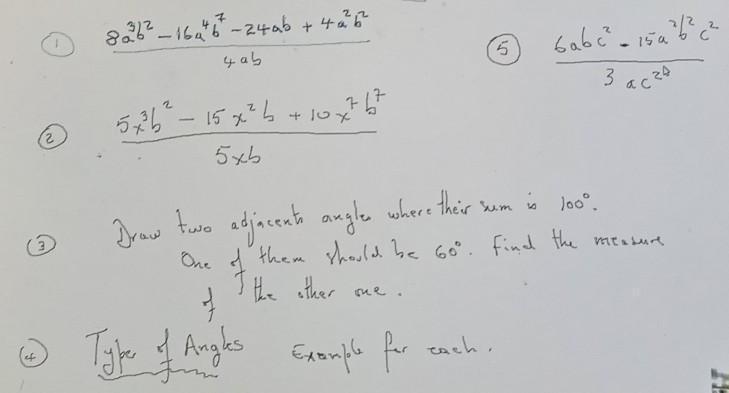 ① 8a³b² − 16a⁴b⁷ − 24ab + 4a²b²
4ab
⑤ 6abc² − 15a²b²c²
3ac²
② 5x³b² − 15x²b + 10x⁷b⁷
5xb
③ Draw two adjacent angles where their sum is 100°.
One of them should be 60°. Find the measure
of the other one.
④ Type of Angles Example for each.